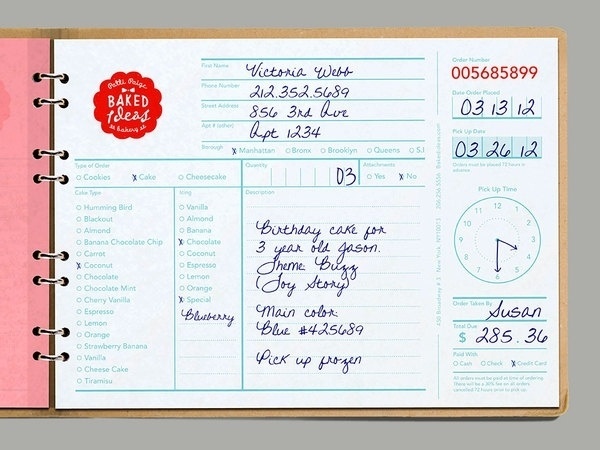 Patti Paige
BAKED
Ideas
First Name
Victoria Webb
Phone Number
212.352.5689
Street Address
856 3rd Ave
Apt # (other)
Apt 1234
Borough x Manhattan Bronx Brooklyn Queens S.I
Type of Order
Cookies x Cake Cheesecake
Quantity
03
Attachments
Yes x No
Cake Type
Humming Bird
Blackout
Almond
Banana Chocolate Chip
Carrot
x Coconut
Chocolate
Chocolate Mint
Cherry Vanilla
Espresso
Lemon
Orange
Strawberry Banana
Vanilla
Cheese Cake
Tiramisu
Icing
Vanilla
Almond
Banana
x Chocolate
Coconut
Espresso
Lemon
Orange
x Special
Blueberry
Description
Birthday cake for
3 year old Jason.
Theme: Buzz
(Toy Story)
Main color:
Blue #425689
Pick up frozen
450 Broadway # 2, New York, NY 10013
Order Number
005685899
Date Order Placed
03 13 12
Pick Up Date
03 26 12
Orders must be placed 72 hours in
advance
Pick Up Time
12
1
2
3
4
5
6
7
8
9
10
11
Order Taken By
Susan
Total Due
$ 285.36
Paid With
Cash Check x Credit Card
All orders must be paid at time of ordering
There will be a 30% fee on all orders
cancelled 72 hours prior to pick up.